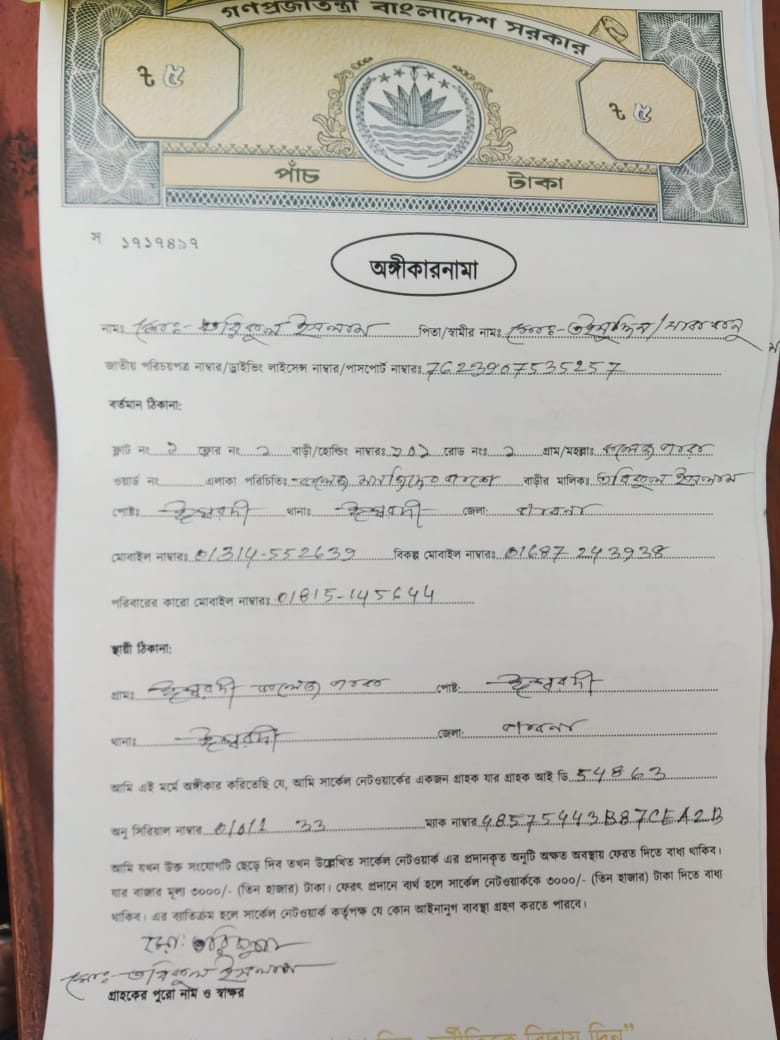 গণপ্রজাতন্ত্রী বাংলাদেশ সরকার
৳ ৫
৳ ৫
পাঁচ টাকা
স ১৭১৭৪১৭
অঙ্গীকারনামা
নামঃ মোঃ- তরিকুল ইসলাম পিতা/স্বামীর নামঃ মোঃ-
জাতীয় পরিচয়পত্র নাম্বার/ড্রাইভিং লাইসেন্স নাম্বার/পাসপোর্ট নাম্বারঃ 7623907535257
বর্তমান ঠিকানা:
ফ্লাট নং ১ ফ্লোর নং ১ বাড়ী/হোল্ডিং নাম্বারঃ ২০১ রোড নংঃ ১ গ্রাম/মহল্লাঃ কলেজ পাড়া
ওয়ার্ড নং এলাকা পরিচিতিঃ কলেজ মসজিদের পাশে বাড়ীর মালিকঃ তরিকুল ইসলাম
পোষ্টঃ ঈশ্বরদী থানাঃ ঈশ্বরদী জেলা: পাবনা
মোবাইল নাম্বারঃ 01314-552639 বিকল্প মোবাইল নাম্বারঃ 01687 243938
পরিবারের কারো মোবাইল নাম্বারঃ 01815-145644
স্থায়ী ঠিকানা:
গ্রামঃ ঈশ্বরদী কলেজ পাড়া পোষ্ট: ঈশ্বরদী
থানাঃ ঈশ্বরদী জেলা: পাবনা
আমি এই মর্মে অঙ্গীকার করিতেছি যে, আমি সার্কেল নেটওয়ার্কের একজন গ্রাহক যার গ্রাহক আই ডি 54863
অনু সিরিয়াল নাম্বার 33 ম্যাক নাম্বার 48575443B87CEA2B
আমি যখন উক্ত সংযোগটি ছেড়ে দিব তখন উল্লেখিত সার্কেল নেটওয়ার্ক এর প্রদানকৃত অনুটি অক্ষত অবস্থায় ফেরত দিতে বাধ্য থাকিব।
যার বাজার মূল্য ৩০০০/- (তিন হাজার) টাকা। ফেরৎ প্রদানে ব্যর্থ হলে সার্কেল নেটওয়ার্ককে ৩০০০/- (তিন হাজার) টাকা দিতে বাধ্য
থাকিব। এর ব্যতিক্রম হলে সার্কেল নেটওয়ার্ক কর্তৃপক্ষ যে কোন আইনানুগ ব্যবস্থা গ্রহণ করতে পারবে।
মোঃ তরিকুল
মোঃ- তরিকুল ইসলাম
গ্রাহকের পুরো নাম ও স্বাক্ষর
বিদায় দিন"